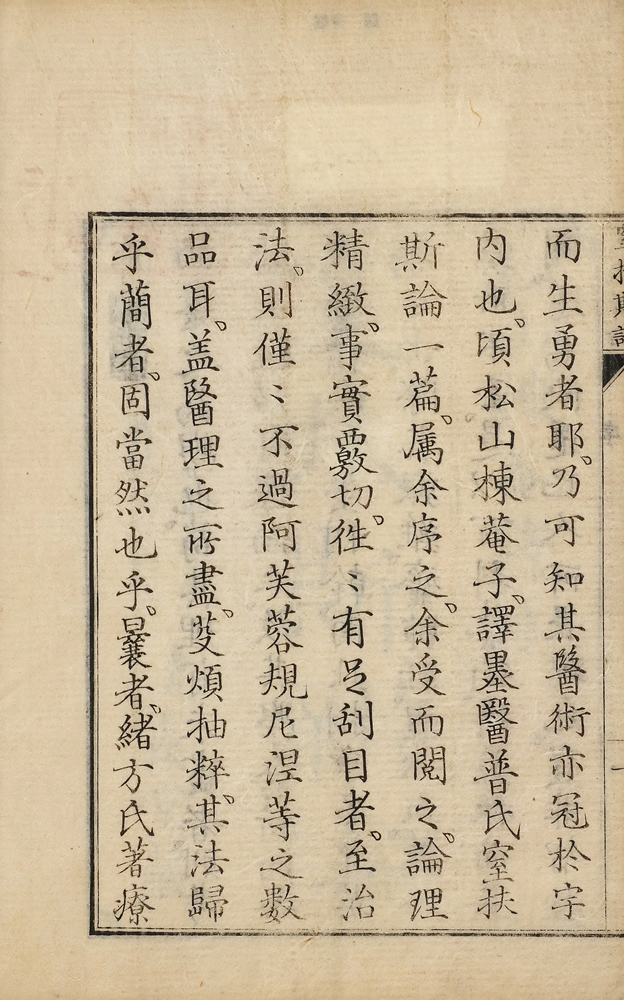 而生勇者耶。乃可知其醫術亦冠於宇
内也。頃松山棟菴子。譯墨醫普氏窒扶
斯論一篇。属余序之。余受而閲之。論理
精緻。事實覈切。徃〻有足刮目者。至治
法。則僅〻不過阿芙蓉規尼涅等之數
品耳。盖醫理之所盡。芟煩抽粹。其法歸
乎蕳者。固當然也乎。曩者。緒方氏著療